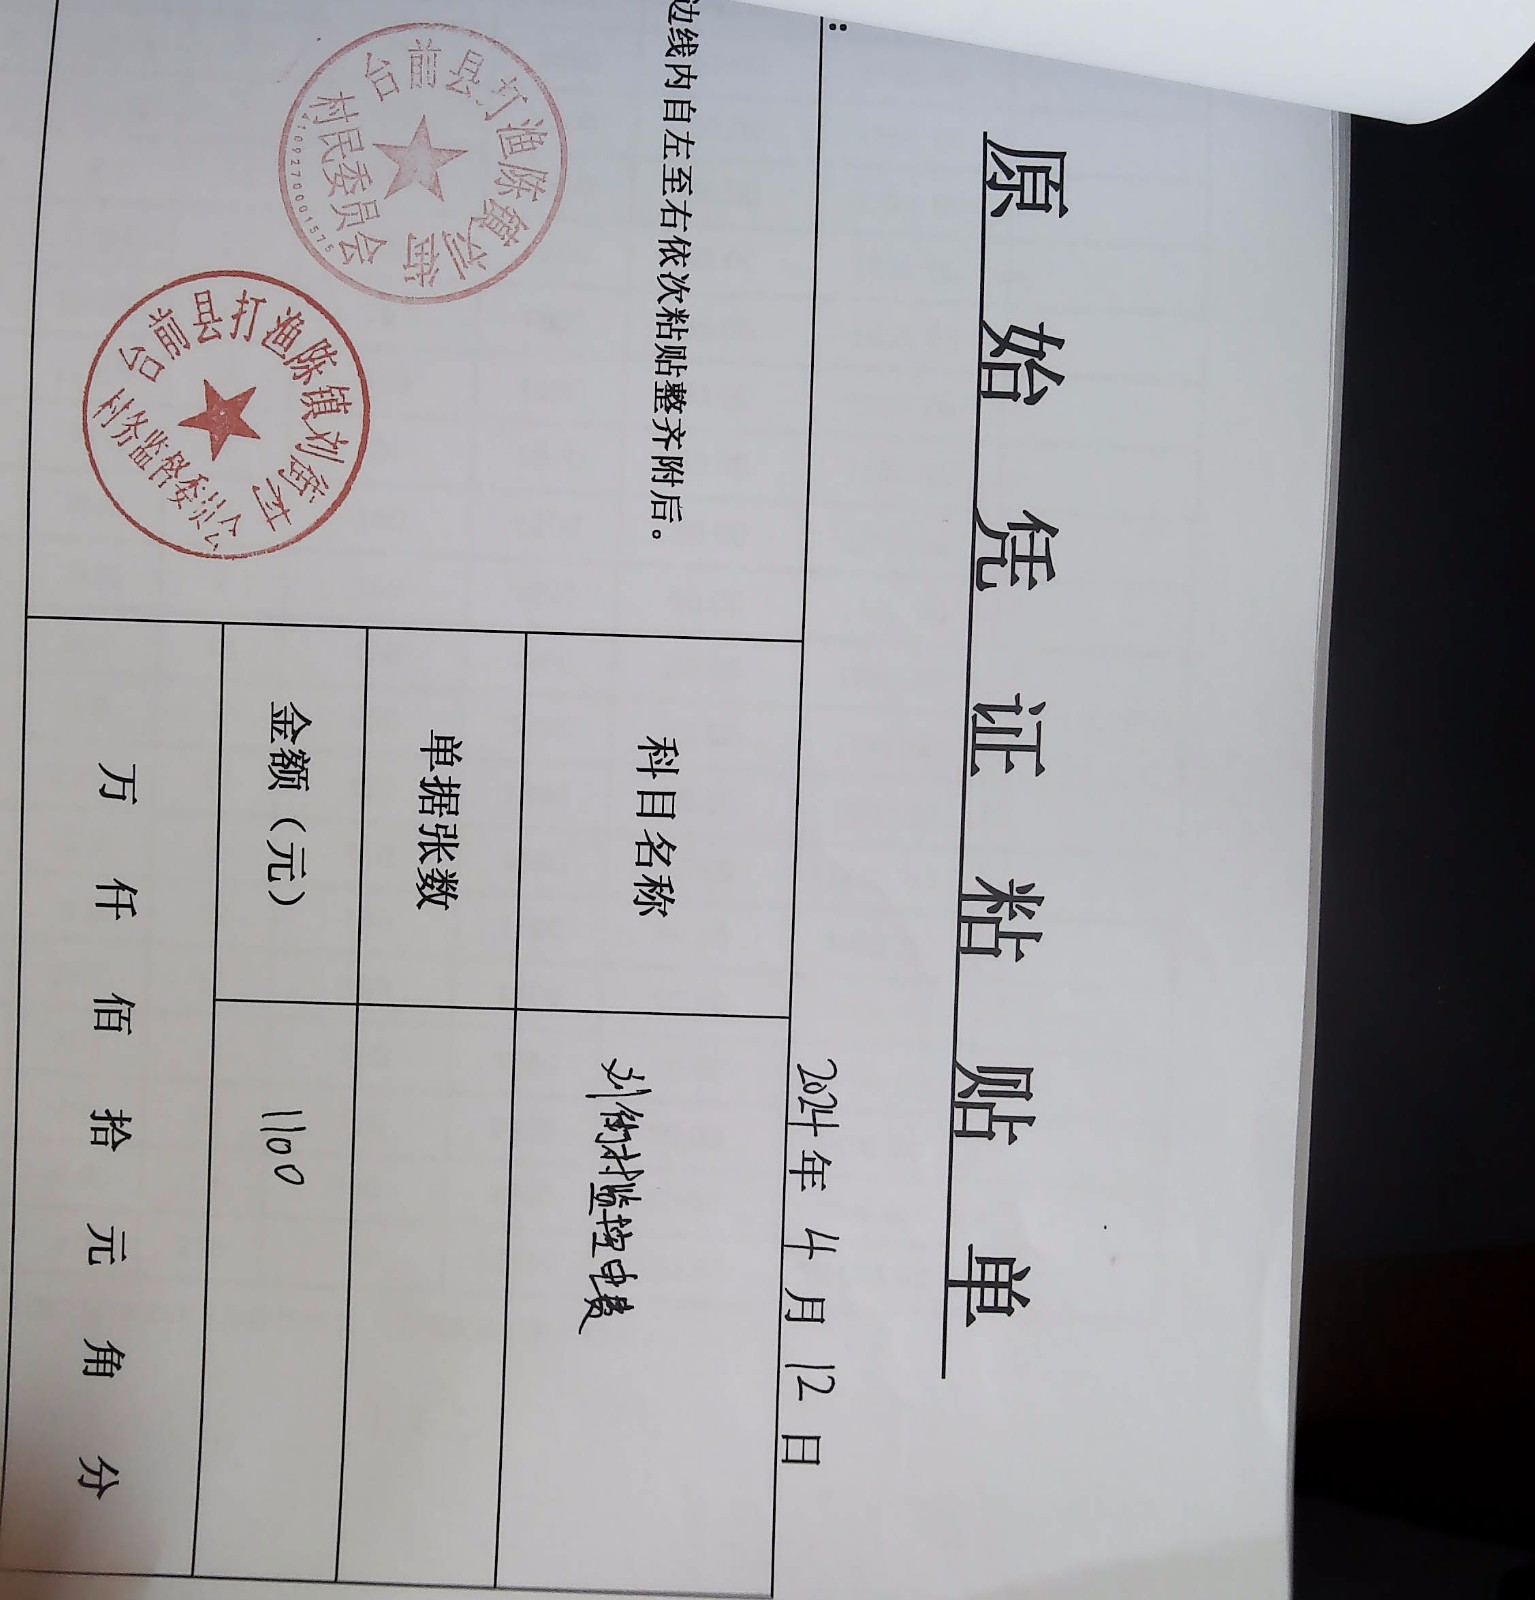 原始凭证粘贴单
2024年4月12日
边线内自左至右依次粘贴整齐附后。
科目名称
刘衙村监控电费
单据张数
金额（元）
1100
万仟佰拾元角分
台前县打渔陈镇刘衙
村民委员会
4109270001575
台前县打渔陈镇刘衙村
村务监督委员会